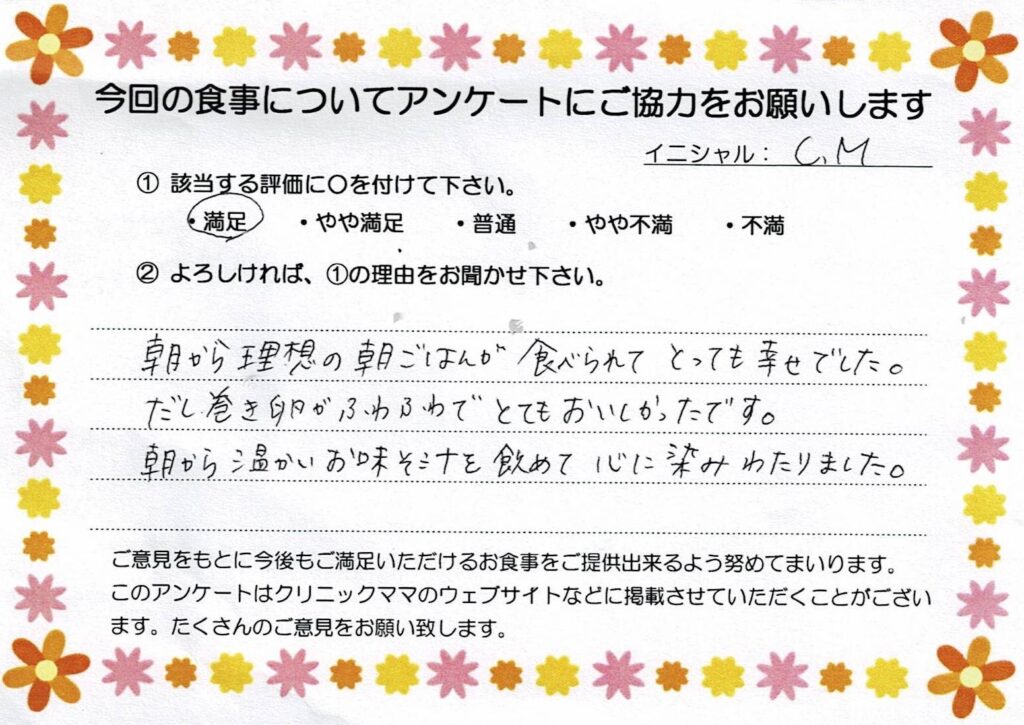 今回の食事についてアンケートにご協力をお願いします
イニシャル： C.M
① 該当する評価に〇を付けて下さい。
・満足　・やや満足　・普通　・やや不満　・不満
② よろしければ、①の理由をお聞かせ下さい。
朝から理想の朝ごはんが食べられてとっても幸せでした。
だし巻き卵がふわふわでとてもおいしかったです。
朝から温かいお味そ汁を飲めて心に染みわたりました。
ご意見をもとに今後もご満足いただけるお食事をご提供出来るよう努めてまいります。
このアンケートはクリニックママのウェブサイトなどに掲載させていただくことがござい
ます。たくさんのご意見をお願い致します。